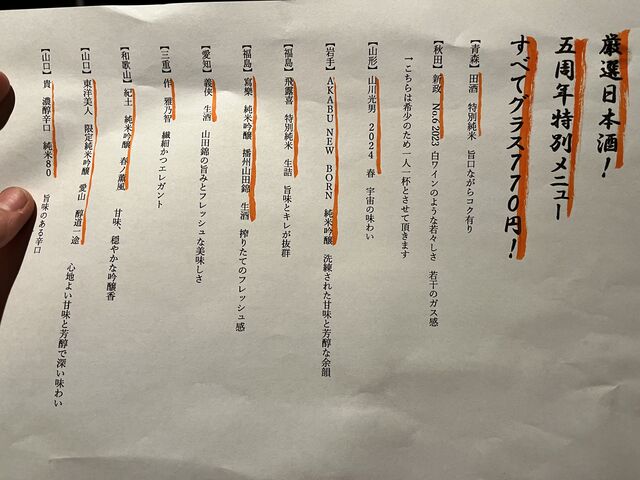 厳選日本酒！
五周年特別メニュー
すべてグラス770円！
【青森】田酒　特別純米　旨口ながらコク有り
【秋田】新政　No.6 2023　白ワインのような若々しさ　若干のガス感
→こちらは希少のため一人一杯とさせて頂きます
【山形】山川光男　2024　春　宇宙の味わい
【岩手】AKABU NEW BORN　純米吟醸　洗練された甘味と芳醇な余韻
【福島】飛露喜　特別純米　生詰　旨味とキレが抜群
【福島】寫樂　純米吟醸　播州山田錦　生酒　搾りたてのフレッシュ感
【愛知】義侠　生酒　山田錦の旨みとフレッシュな美味しさ
【三重】作　雅乃智　繊細かつエレガント
【和歌山】紀土　純米吟醸　春ノ薫風　甘味、穏やかな吟醸香
【山口】東洋美人　限定純米吟醸　愛山　醇道一途　心地よい甘味と芳醇で深い味わい
【山口】貴　濃醇辛口　純米80　旨味のある辛口